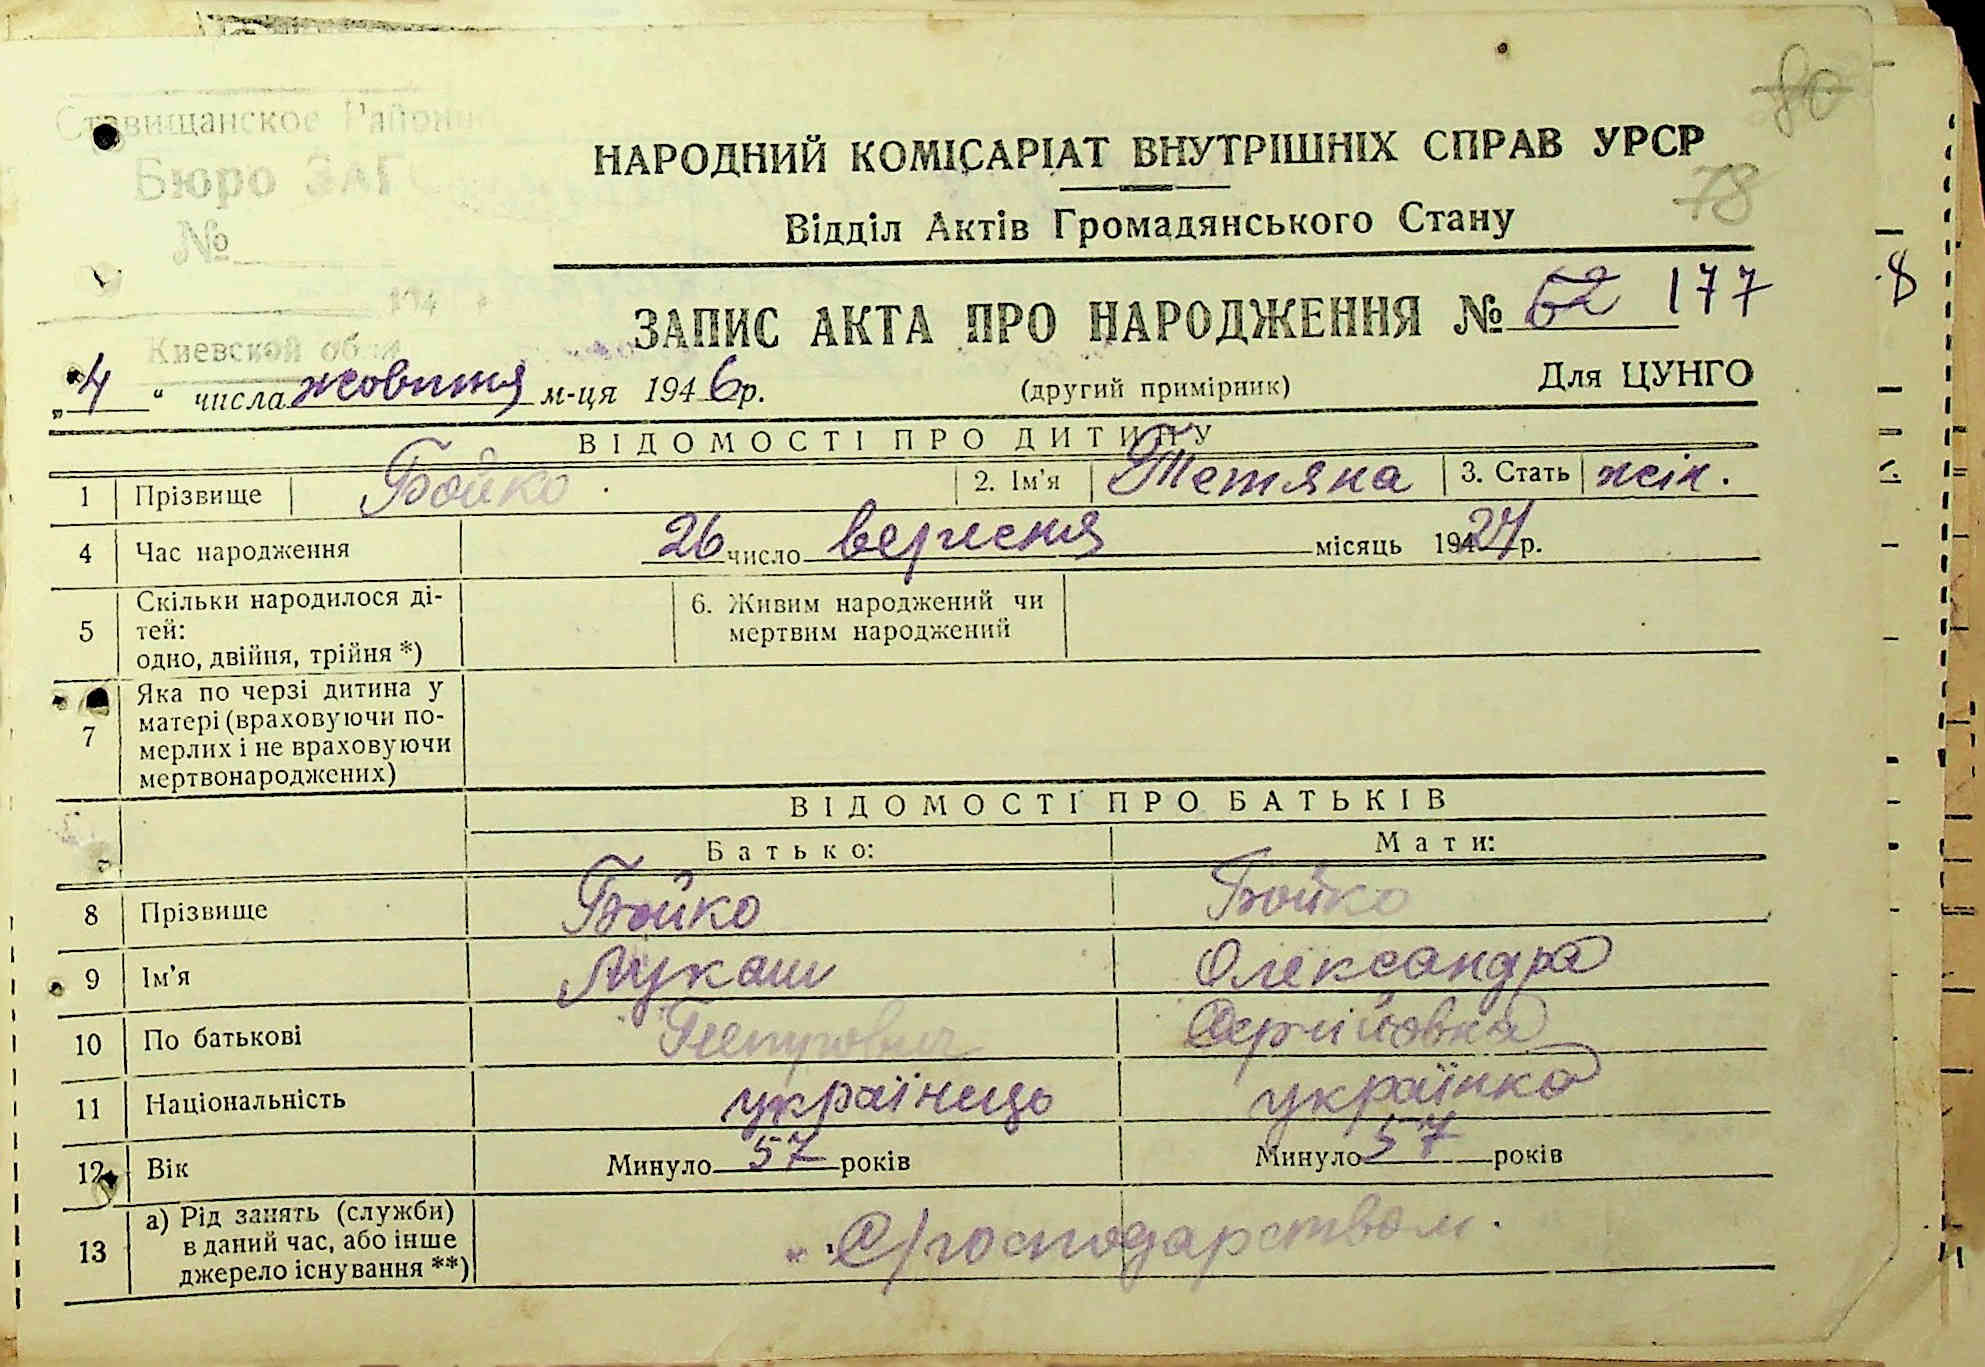 80
Ставищанское Районн
Бюро ЗАГС
№
194
Киевской обл.
НАРОДНИЙ КОМІСАРІАТ ВНУТРІШНІХ СПРАВ УРСР
78
Відділ Актів Громадянського Стану
ЗАПИС АКТА ПРО НАРОДЖЕННЯ № 62 177
8
„4“ числа жовтня м-ця 1946 р. (другий примірник) Для ЦУНГО
ВІДОМОСТІ ПРО ДИТИНУ
1 Прізвище Бойко 2. Ім'я Тетяна 3. Стать жін.
4 Час народження 26 число вересня місяць 1927 р.
5 Скільки народилося ді-
тей:
одно, двійня, трійня *)
6. Живим народжений чи
мертвим народжений
7 Яка по черзі дитина у
матері (враховуючи по-
мерлих і не враховуючи
мертвонароджених)
ВІДОМОСТІ ПРО БАТЬКІВ
Батько: Мати:
8 Прізвище Бойко Бойко
9 Ім'я Лукаш Олександра
10 По батькові Петрович Сергійовна
11 Національність українець українка
12 Вік Минуло 57 років Минуло 57 років
13 а) Рід занять (служби)
в даний час, або інше
джерело існування **)
С/господарством.